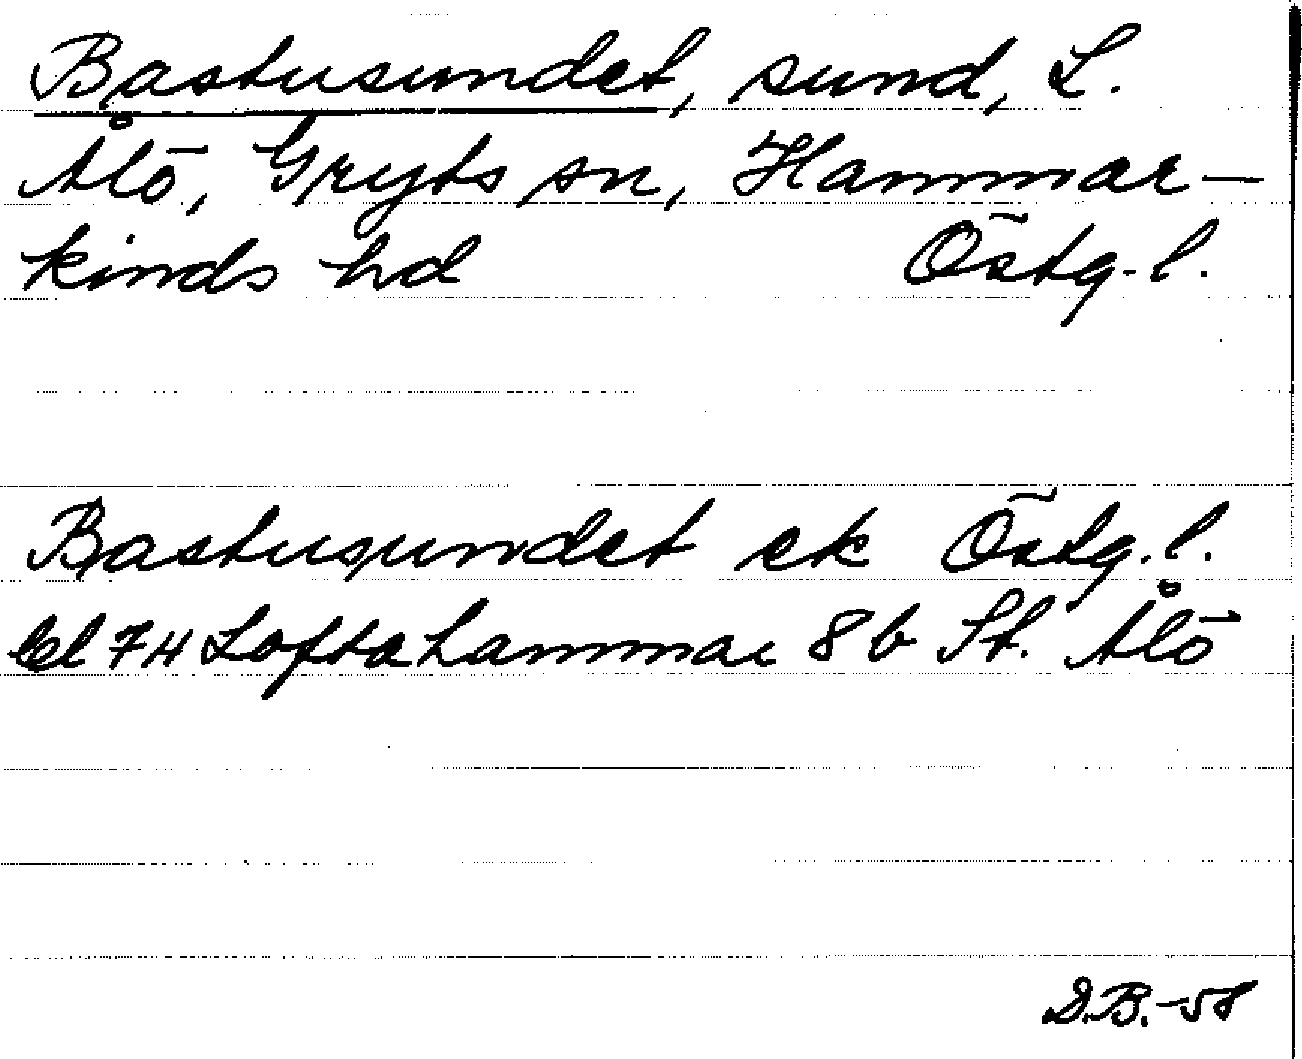 Bastusundet, sund, L.
Ålö, Gryts sn, Hammar-
kinds hd Östg. l.
Bastusundet ek Östg. l.
bl 7H Loftahammar 8b St. Ålö
D.B. -58